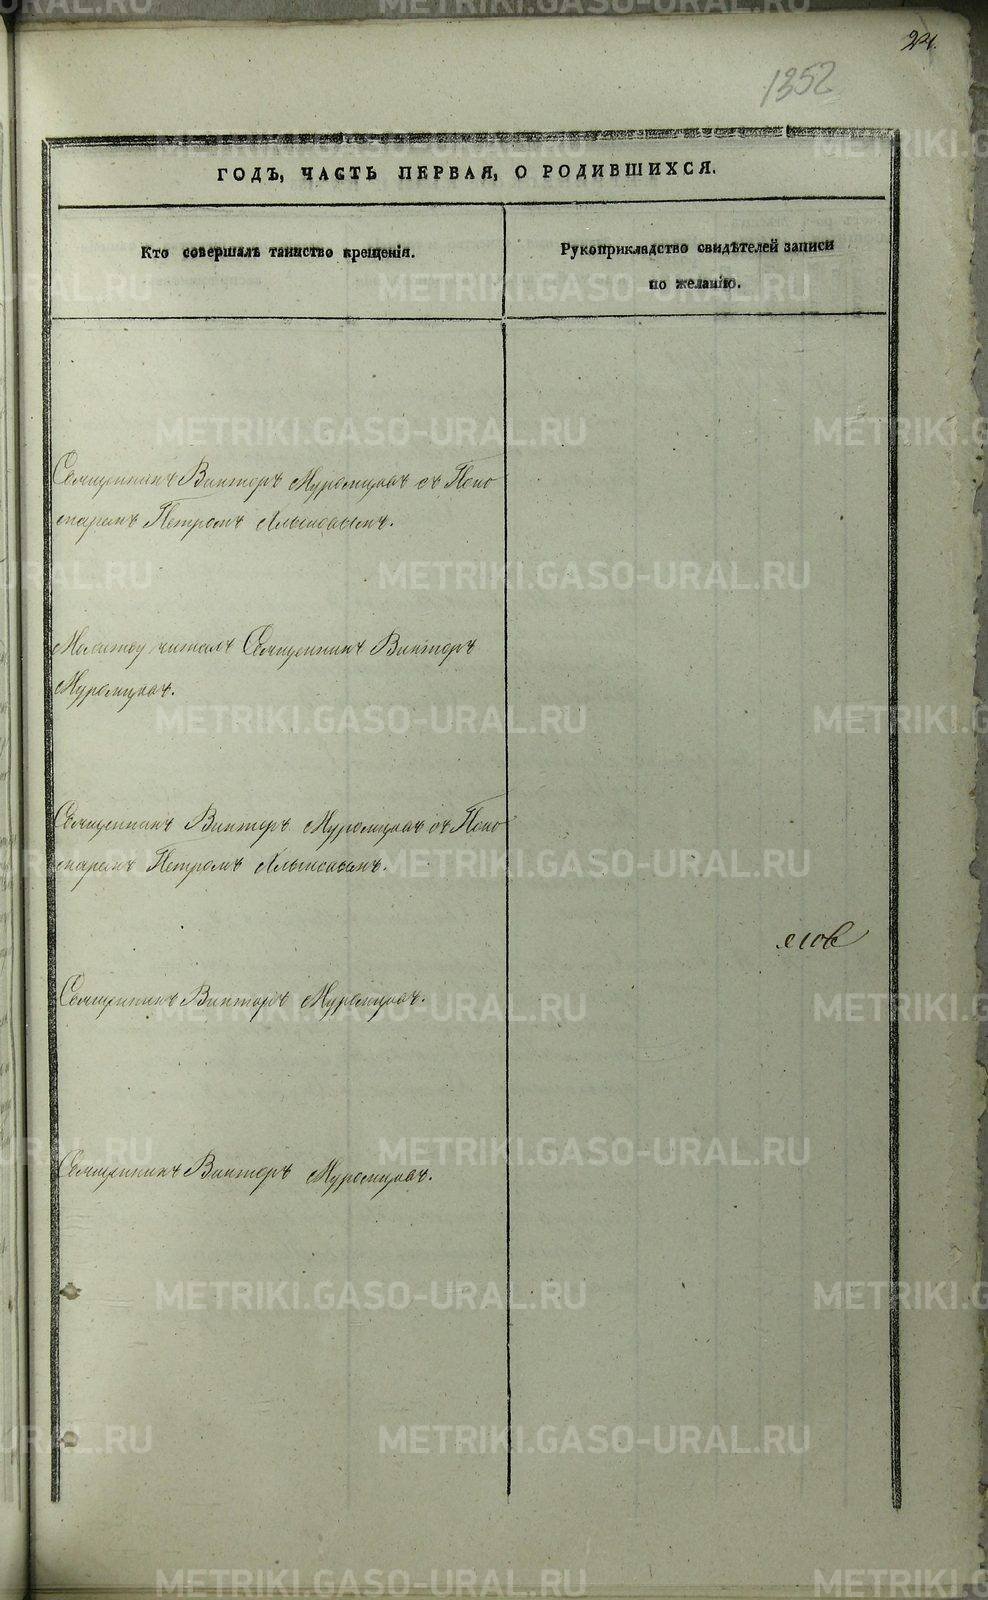 24.
1352
ГОДЪ, ЧАСТЬ ПЕРВАЯ, О РОДИВШИХСЯ.
Кто совершалъ таинство крещенія.
Рукоприкладство свидѣтелей записи
по желанію.
Священникъ Викторъ Муромцовъ съ Поно
марем Петромъ
Молитву читалъ Священникъ Викторъ
Муромцовъ.
Священникъ Викторъ Муромцовъ съ Поно
марем Петромъ
Священникъ Викторъ Муромцовъ.
Священникъ Викторъ Муромцовъ.
METRIKI.GASO-URAL.RU